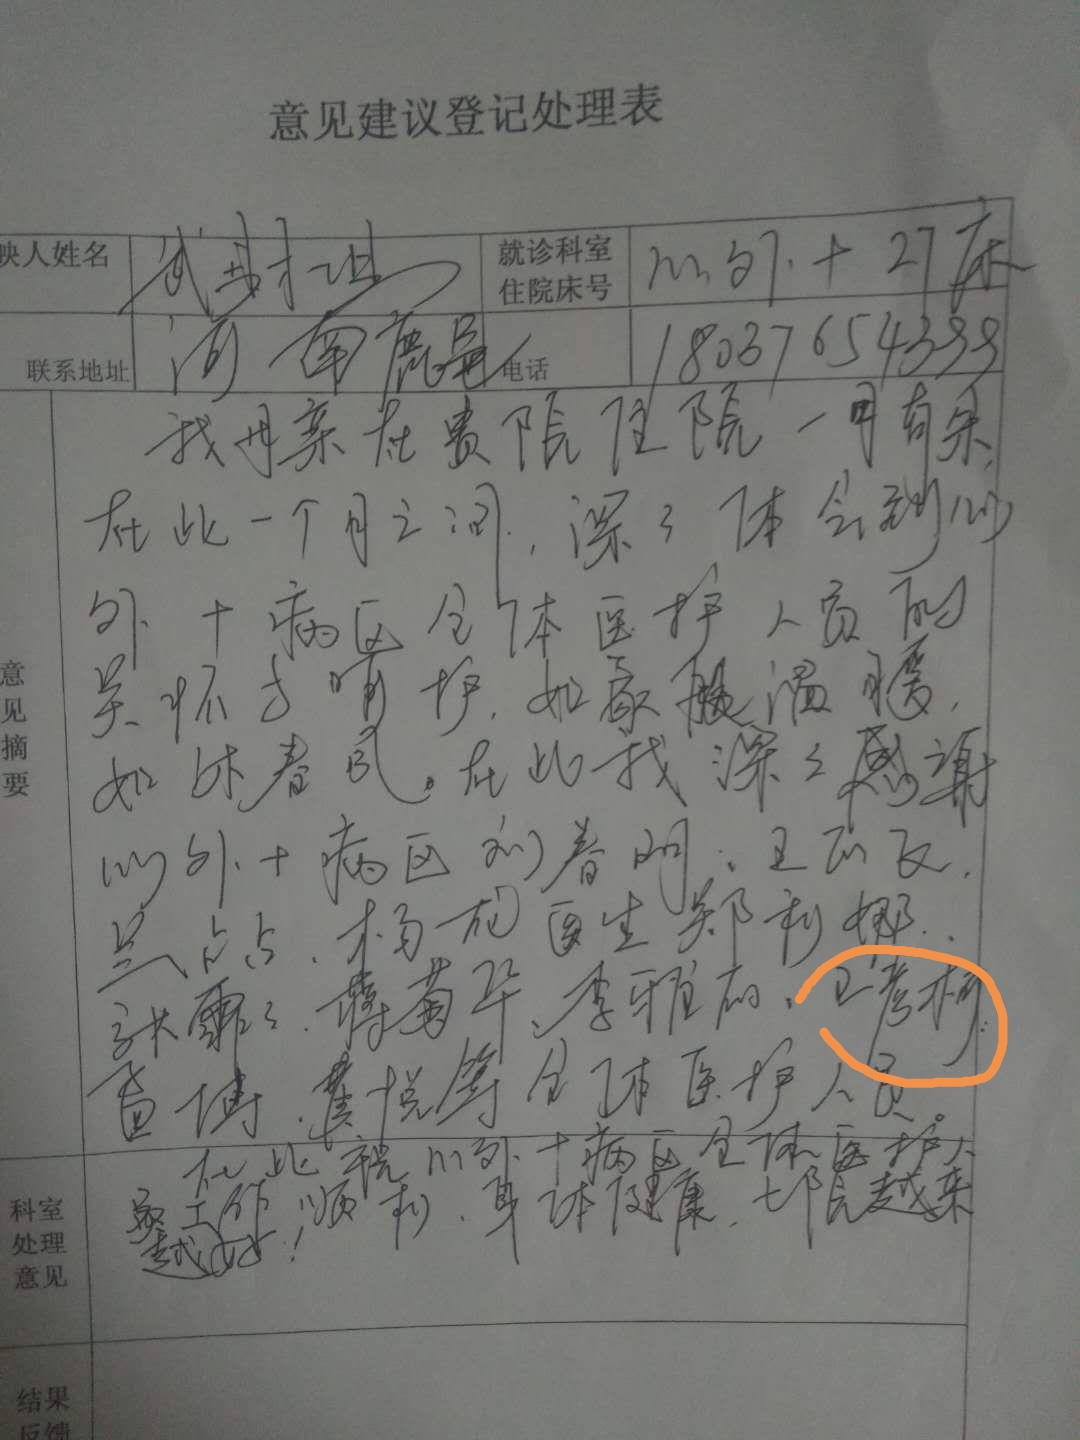 意见建议登记处理表
映人姓名
就诊科室 心外十27床
住院床号
联系地址 河南鹿邑 电话 18037654399
意见摘要
我母亲在贵院住院一月有余,
在此一个月之间,深々体会到心
外十病区全体医护人员的
关怀与呵护,如家般温暖,
如沐春风。在此我深々感谢
心外十病区刘春明、王
、杨龙医生郑利娜、
张霏々、蒋菊华、李雅、王彦
博、悦等全体医护人员。
在此祝心外十病区全体医护人
员工作顺利,身体健康,七院越来
越好!
科室
处理
意见
结果
反馈